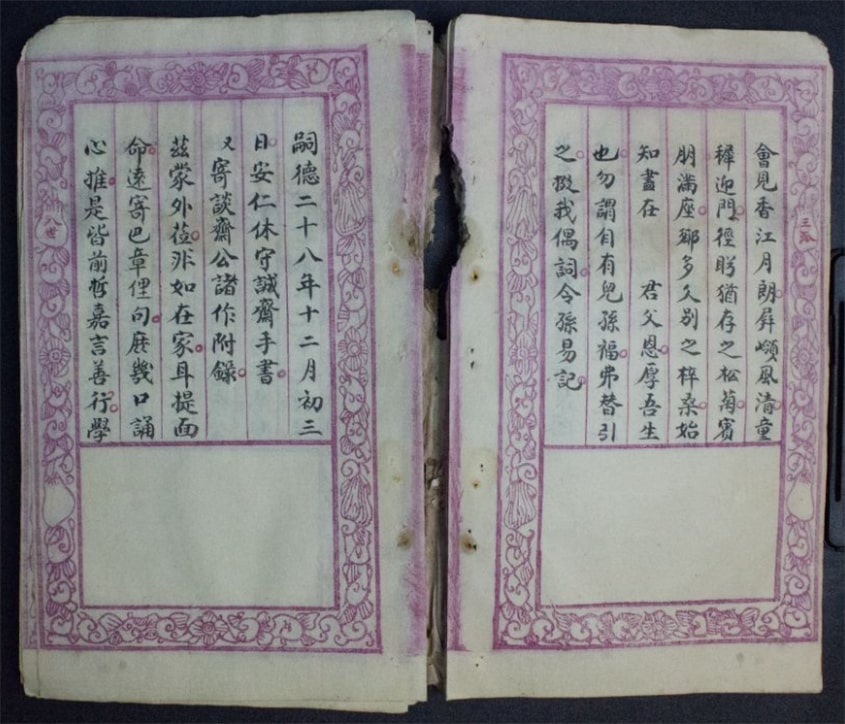 會見香江月朗屛嶺風清童
穉迎門徑盻猶存之松菊賓
朋滿座鄉多久别之梓桑始
知盡在 君父恩厚吾生
也勿謂自有兒孫福弗替引
之掇我偶詞令孫易記
嗣德二十八年十二月初三
日安仁休守誠齋手書
又寄談齋公諸作附錄
茲蒙外莅非如在家耳提面
命遠寄巴章俚句庶幾口誦
心推是皆前哲嘉言善行學